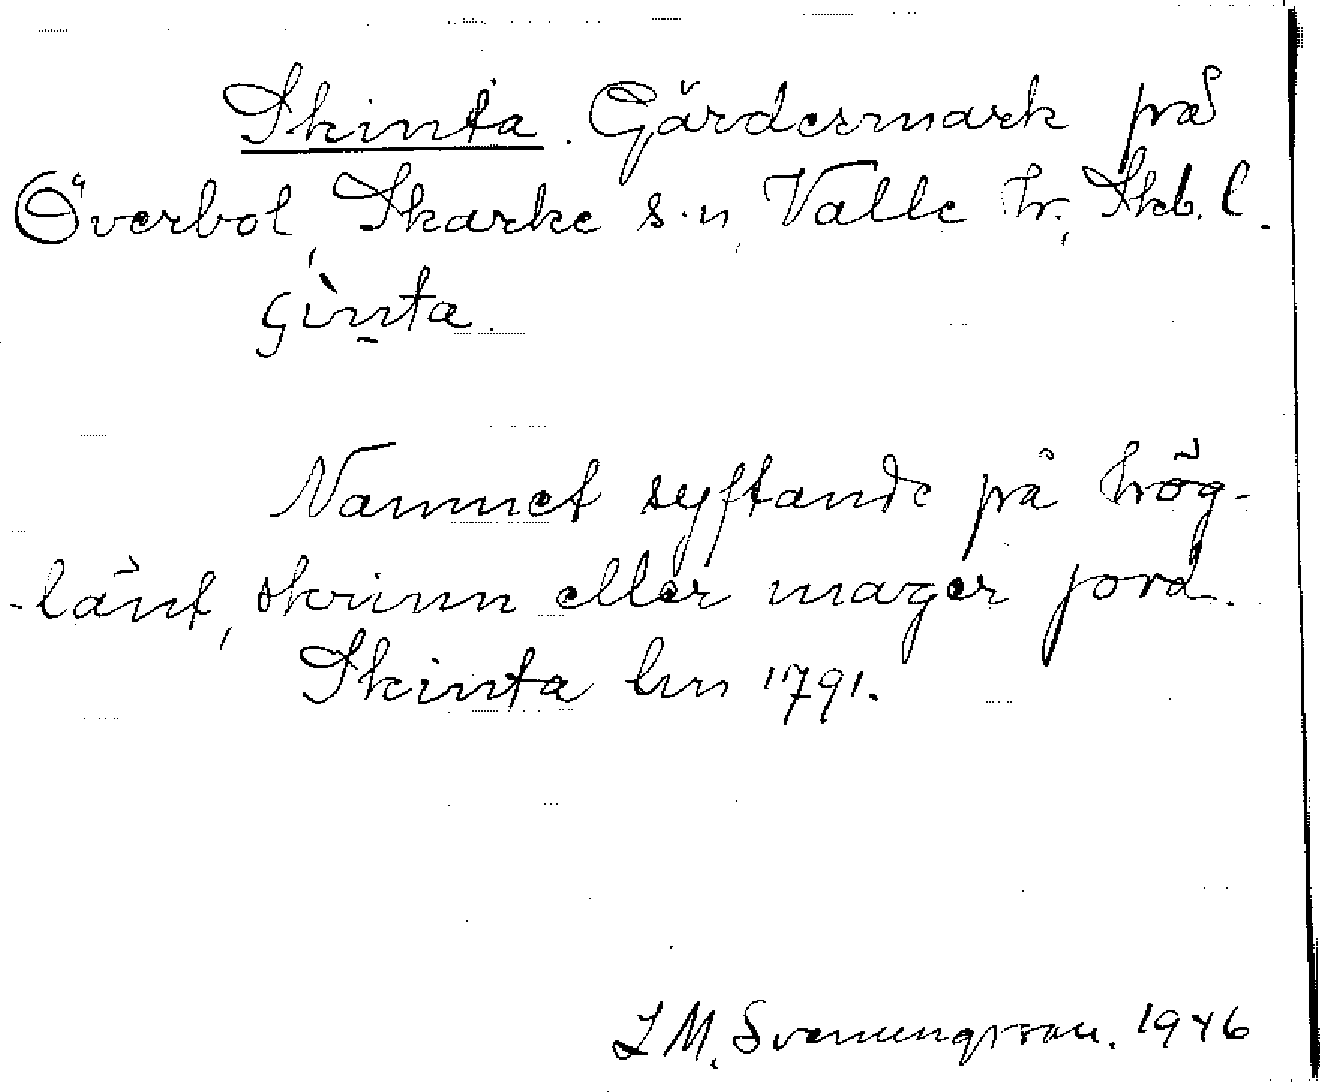 Skinta. Gärdesmark på
Överbol, Skarke s:n, Valle hr, Skb. l.
çìnta.
Namnet syftande på hög-
länt, skrinn eller mager jord.
Skinta lm 1791.
L M. Svenungsson. 1946